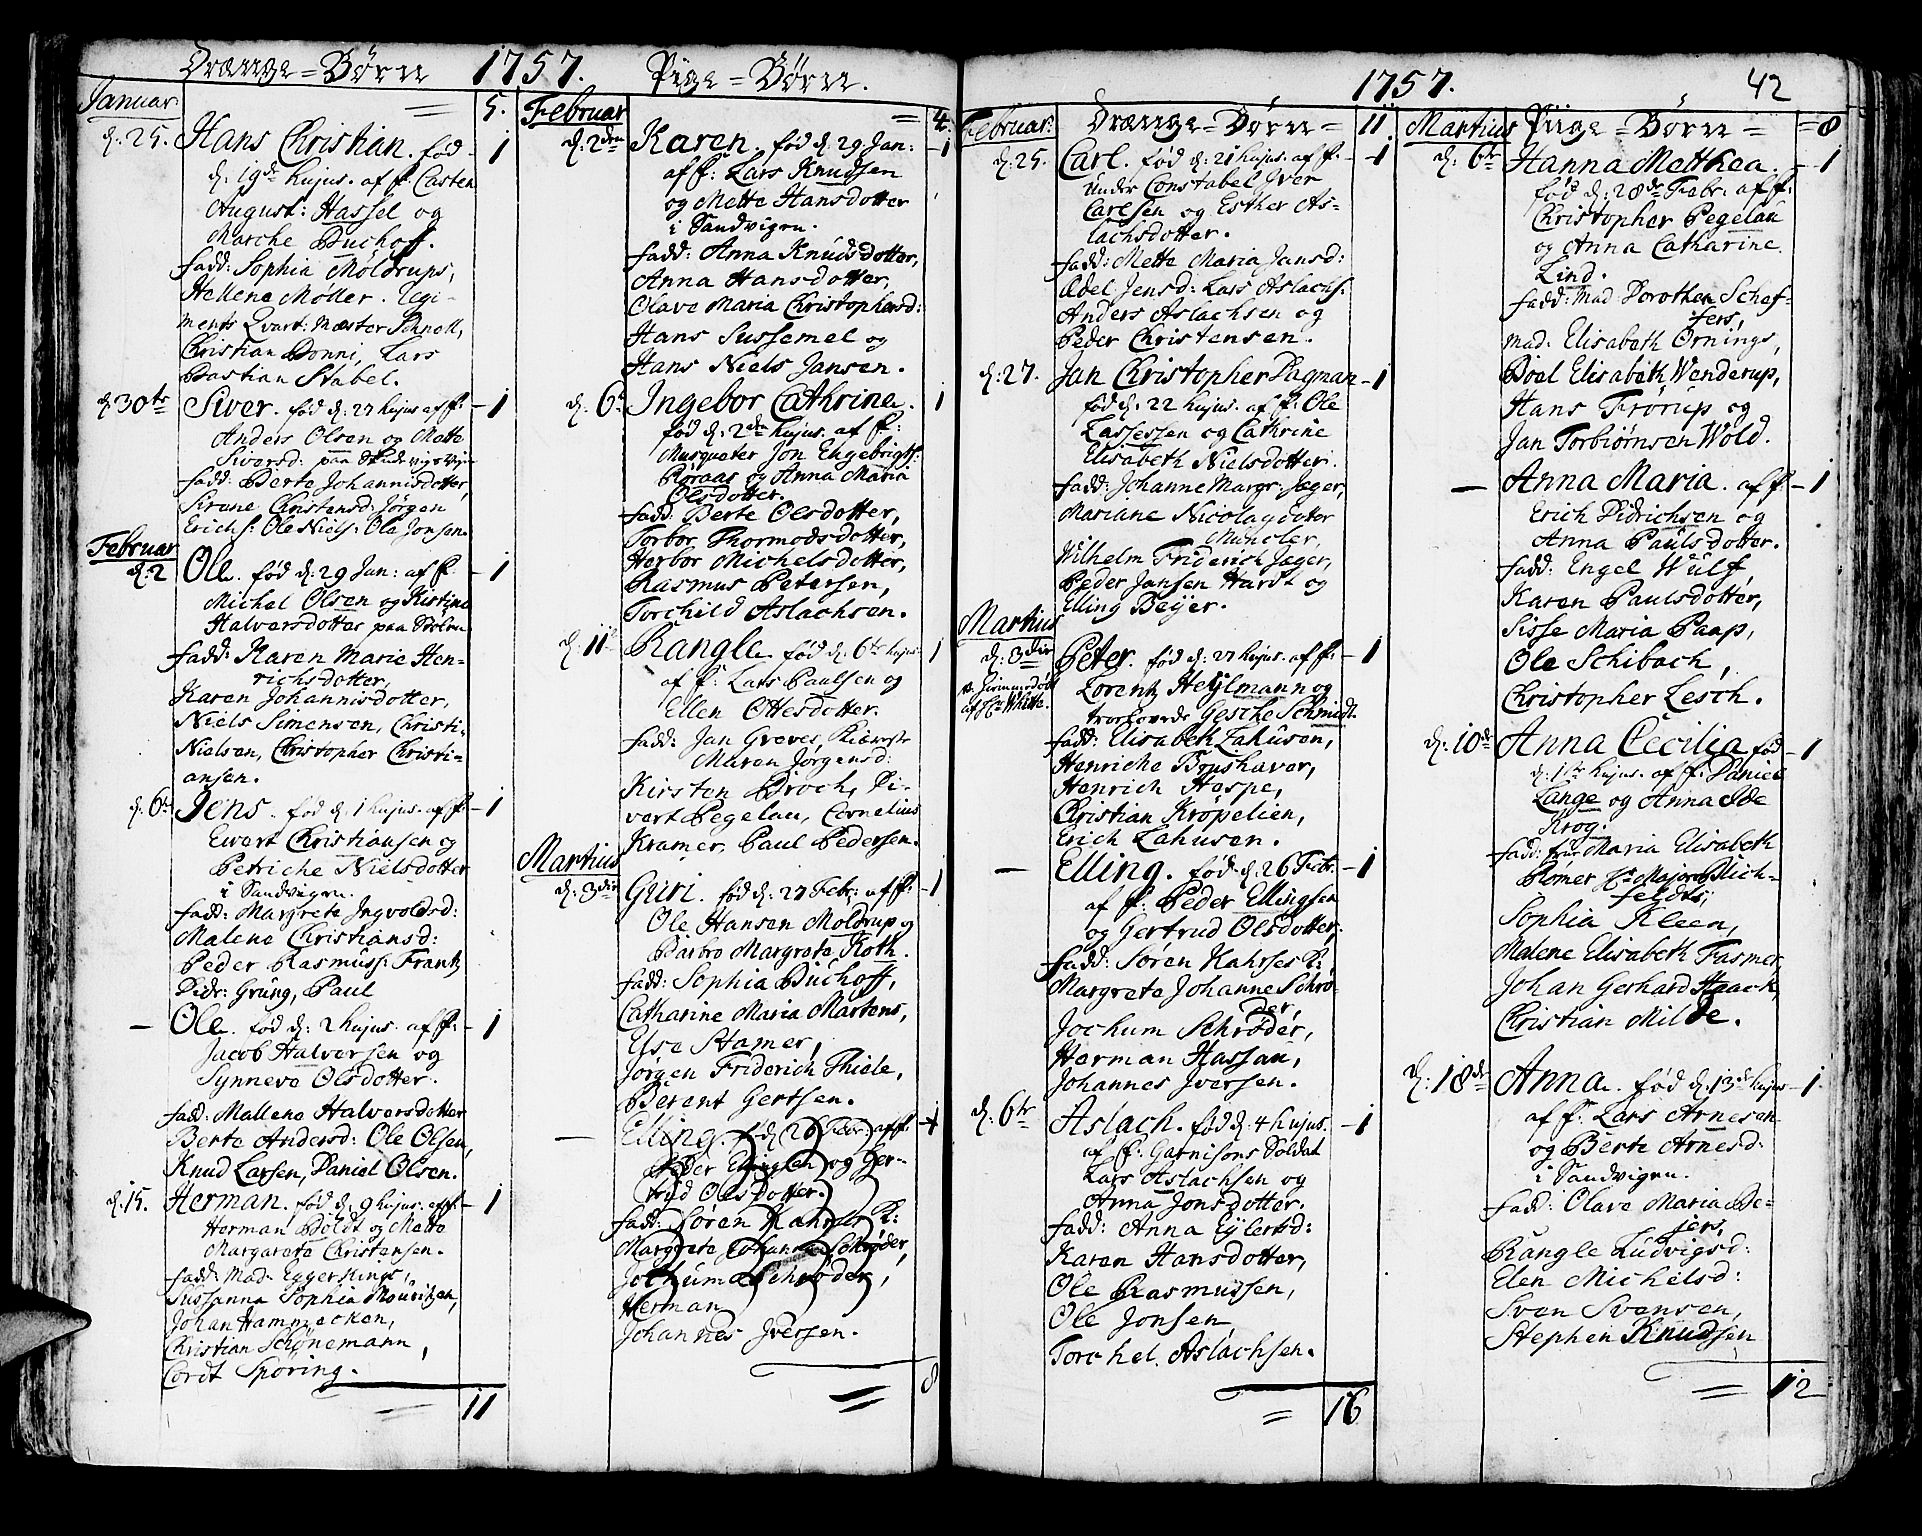 Drænge=Børn 1757. Pige=Børn.
Januar: = 5.
d: 25. Hans Christian. fød - 1
d: 19de hujus. af f: Casten
August: Hassel og
Marche Buchoff.
fadd: Sophia Møldrups,
Hellene Møller. Regi-
ments Qvart: Mæster Schnell,
Christian Bonni, Lars
Bastian Stabel.
d: 30te Siver. fød d: 27 hujus af f: - 1
Anders Olsen og Mette
Siversd: paa
fadd: Berte Johannisdotter,
Sirene Christensd: Jörgen
Erich S: Ole Niels: Ole Jonsen.
Februar
d: 2 Ole. fød d: 29 Jan: af f: - 1
Michel Olsen og Kistine
Halversdotter paa Stølen
fadd: Karen Marie Hen-
richsdotter,
Karen Johannisdotter,
Niels Simensen, Christi-
Nielsen, Christopher Christi=
ansen.
d: 6te Jens. fød d: 1 hujus. af f: - 1
Ewert Christiansen og
Petriche Nielsdotter
i Sandvigen.
fadd: Margrete Ingvoldsd:
Malene Christiansd:
Peder Rasmuss: Frantz
Didr: Grüng, Paul
- Ole. fød d: 2 hujus. af f: - 1
Jacob Halversen og
Synneve Olsdotter.
fadd: Mallene Halversdotter
Berte Andersd: Ole Olsen,
Knud Larsen, Daniel Olsen.
d: 15. Herman. fød d: 9 hujus. af f: - 1
Herman Boldt og Mette
Margarete Christensen.
fadd: Mad. Eggerkings,
Sussanna Sophia Mouritzen,
Johan Hammecken,
Christian Schönemann,
Cordt Sporing.
= 11
Februar = 4.
d: 2den Karen. fød d: 29 Jan: - 1
af f: Lars Knudsen
og Mette Hansdotter
i Sandvigen.
fadd: Anna Knudsdotter,
Anna Hansdotter,
Olave Maria Christophersd:
Hans Sussemel og
Hans Niels Jansen.
d: 6te Ingebor Cathrine. 1
fød d: 2den hujus. af f:
Musqueter Jon Engebrigts:
Röraas og Anna Maria
Olsdotter.
fadd: Berte Olsdotter,
Torbor Thormodsdotter,
Herbor Michelsdotter,
Rasmus Petersen,
Torchild Aslachsen.
d: 11 Rangle. fød d: 6te hujus 1
af f: Lars Paulsen og
Ellen Ottesdotter.
fadd: Jan Greves,
Maren Jørgensd:
Kirsten Broch, Di-
vert Pegelau, Cornelius
Kramer, Paul Pedersen.
Martius
d: 3die Guri. fød d: 27 Febr: af f: - 1
Ole Hansen Moldrup og
Barbro Margrete Roth.
fadd: Sophia Buchoff,
Catharine Maria Martens,
Else Stamer,
Jørgen Friderich Thiele,
Berent Gertsen.
- Elling. fød d: 26 Febr: af f: 1
Peder Ellingsen og Ger-
trud Olsdotter.
fadd: Søren Hahrses K:
Margrete Johanne Schrøder,
Jochum Schrøder,
Herman
Johannes Jversen.
= 8
1757. 42
Februar: Drænge=Børn = 11
d: 25. Carl. fød d: 21 hujus. af f: - 1
Under Constabel Jver
Carlsen og Esther As-
lachsdotter.
fadd: Mette Maria Jansd:
Edel Jensd: Lars Aslachs:
Anders Aslachsen og
Peder Christensen.
d: 27. Jan Christopher Dagman - 1
fød d: 22 hujus. af f: Ole
Lassessen og Cathrine
Elisabeth Nielsdotter.
fadd: Johanne Margr: Jæger,
Mariane Nicolaysdoter
Müncler,
Wilhelm Friderich Jæger,
Peder Jansen Hardt og
Elling Beyer.
Martius
d: 3die Peter. fød d: 27 hujus. af f: - 1
af Hr: Whitte. Lorentz Heylmann og
trorlovede Gesche Schmidt.
fadd: Elisabeth Lahusen,
Henriche Brushaver,
Henrich Hespe,
Christian Kröpelien,
Erich Lahusen.
- Elling. fød d: 26 Febr: - 1
af f: Peder Ellingsen
og Gertrud Olsdotter,
fadd: Søren Hahrses K:
Margrete Johanne Schrø-
der,
Jochum Schrøder,
Herman Hassau,
Johannes Jversen.
d: 6te Aslach. fød d: 4 hujus. - 1
af f: Garnisons Soldat
Lars Aslachsen og
Anna Jonsdotter.
fadd: Anna Eylertsd:
Karen Hansdotter,
Ole Rasmussen,
Ole Jonsen
Torchel Aslachsen.
= 16
Martius Piige=Børn = 8
d: 6te Hanna Metthea - 1
fød d: 28de Febr: af f:
Christopher Pegelau
og Anna Catharine
Lind.
fadd: Mad Dorothea Schef-
fers,
Mad: Elisabeth Ornings,
Boel Elisabeth Wenderup,
Hans Frørup og
Jan Torbiørnsen Wold.
- Anna Maria. af f: - 1
Erich Didrichsen og
Anna Paulsdotter.
fadd: Engel Wulf,
Karen Paulsdotter,
Sisse Maria Paap,
Ole Schibach,
Christopher Lesch.
d: 10de Anna Cecilia fød - 1
d: 1ste hujus. af f: Daniel
Lange og Anna Ide
Krog.
fadd: frue Maria Elisabeth
Blomer Hr Major Blich-
feldts,
Sophia Kleen,
Malene Elisabeth Fasmer,
Johan Gerhard Haack,
Christian Milde.
d: 18de Anna. fød d: 13de hujus - 1
af f: Lars Arnesen
og Berte Arnesd:
i Sandvigen.
fadd: Olave Maria Be-
jers,
Rangle Ludvigsd:
Elen Michelsd:
Sven Svensen,
Stephen Knudsen
= 12